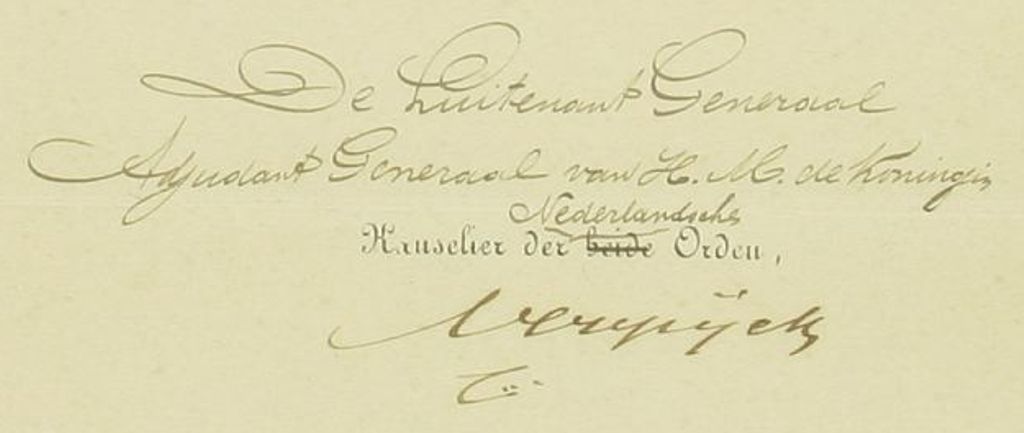 De Luitenant Generaal
Adjudant Generaal van H. M. de Koningin
Nederlandsche
Kanselier der beide Orden,
Verspijck